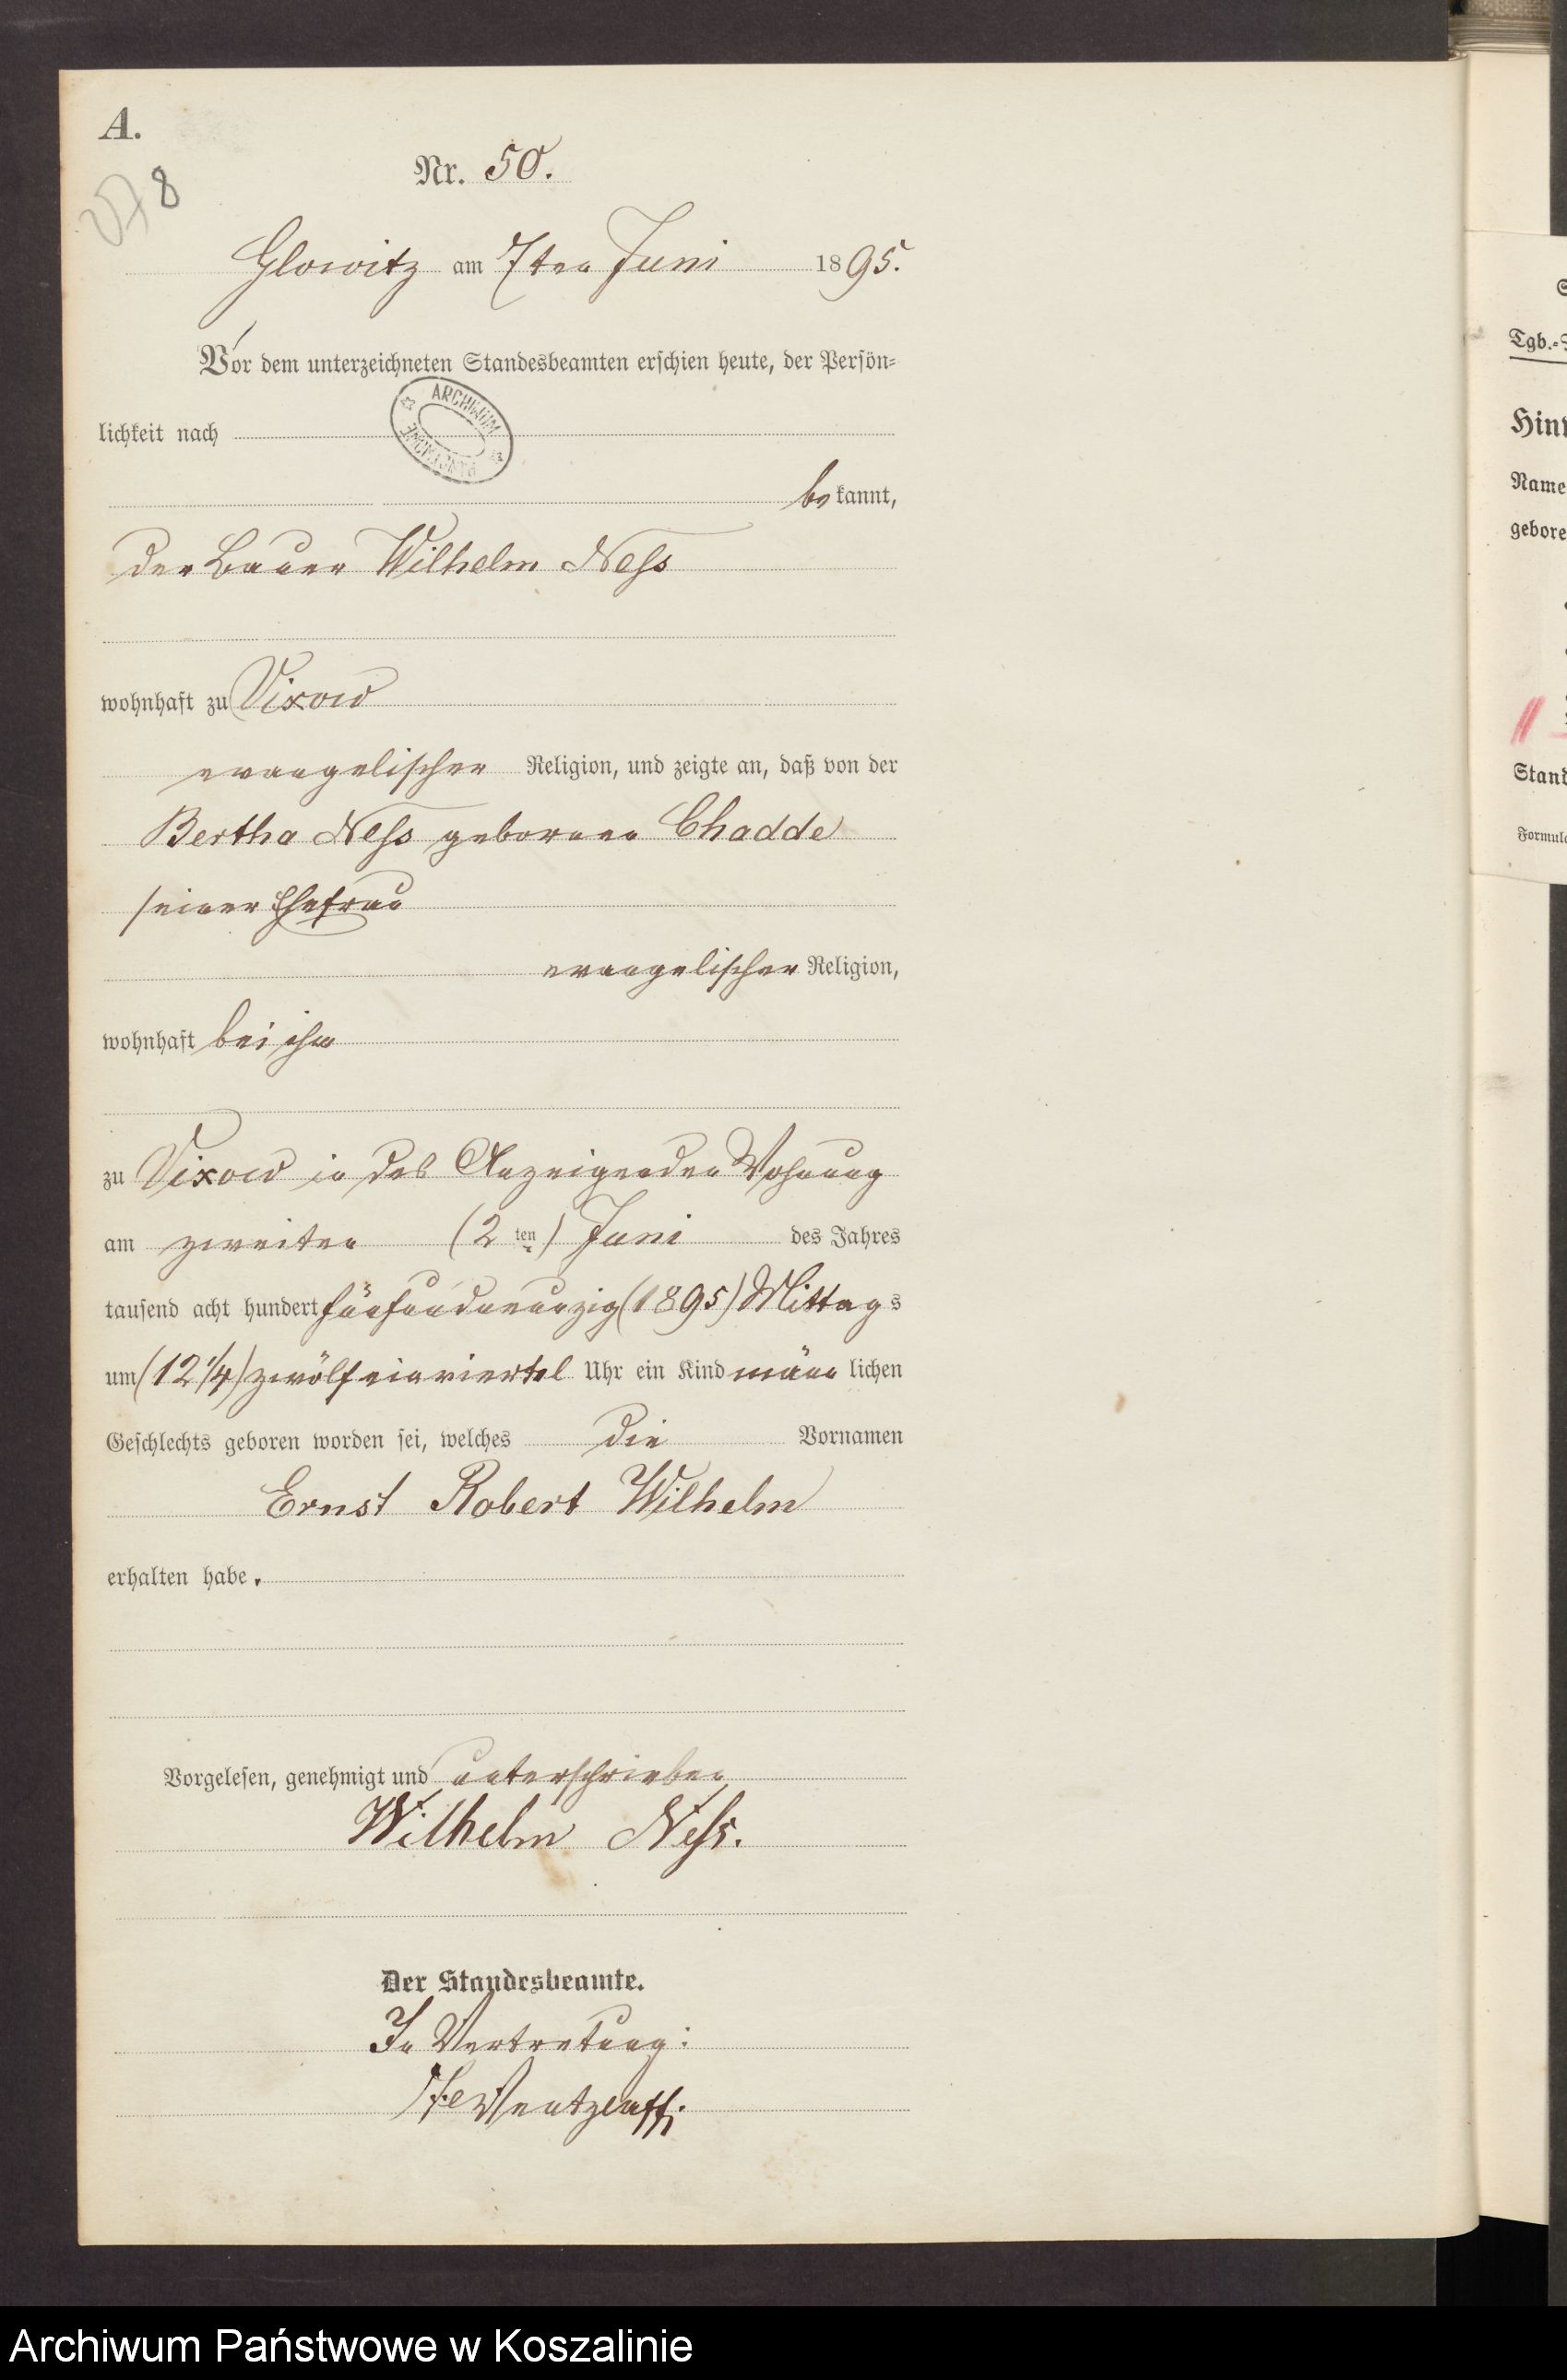 A.
8
Nr. 50.
Glowitz am 7ten Juni 1895.
Vor dem unterzeichneten Standesbeamten erschien heute, der Persön-
lichkeit nach
ARCHIWUM
PAŃSTWOWE
bekannt,
der Bauer Wilhelm Neſs
wohnhaft zu Vixow
evangelischer Religion, und zeigte an, daß von der
Bertha Neſs geborenen Chadde
seiner Ehefrau
evangelischer Religion,
wohnhaft bei ihm
zu Vixow in des Anzeigenden Wohnung
am zweiten (2ten) Juni des Jahres
tausend acht hundert fünfundneunzig (1895) Mittags
um (12 1/4) zwölf einviertel Uhr ein Kind männlichen
Geschlechts geboren worden sei, welches die Vornamen
Ernst Robert Wilhelm
erhalten habe.
Vorgelesen, genehmigt und unterschrieben
Wilhelm Neſs.
Der Standesbeamte.
In Vertretung:
Tgb.-
Name
gebore
Stand
Archiwum Państwowe w Koszalinie